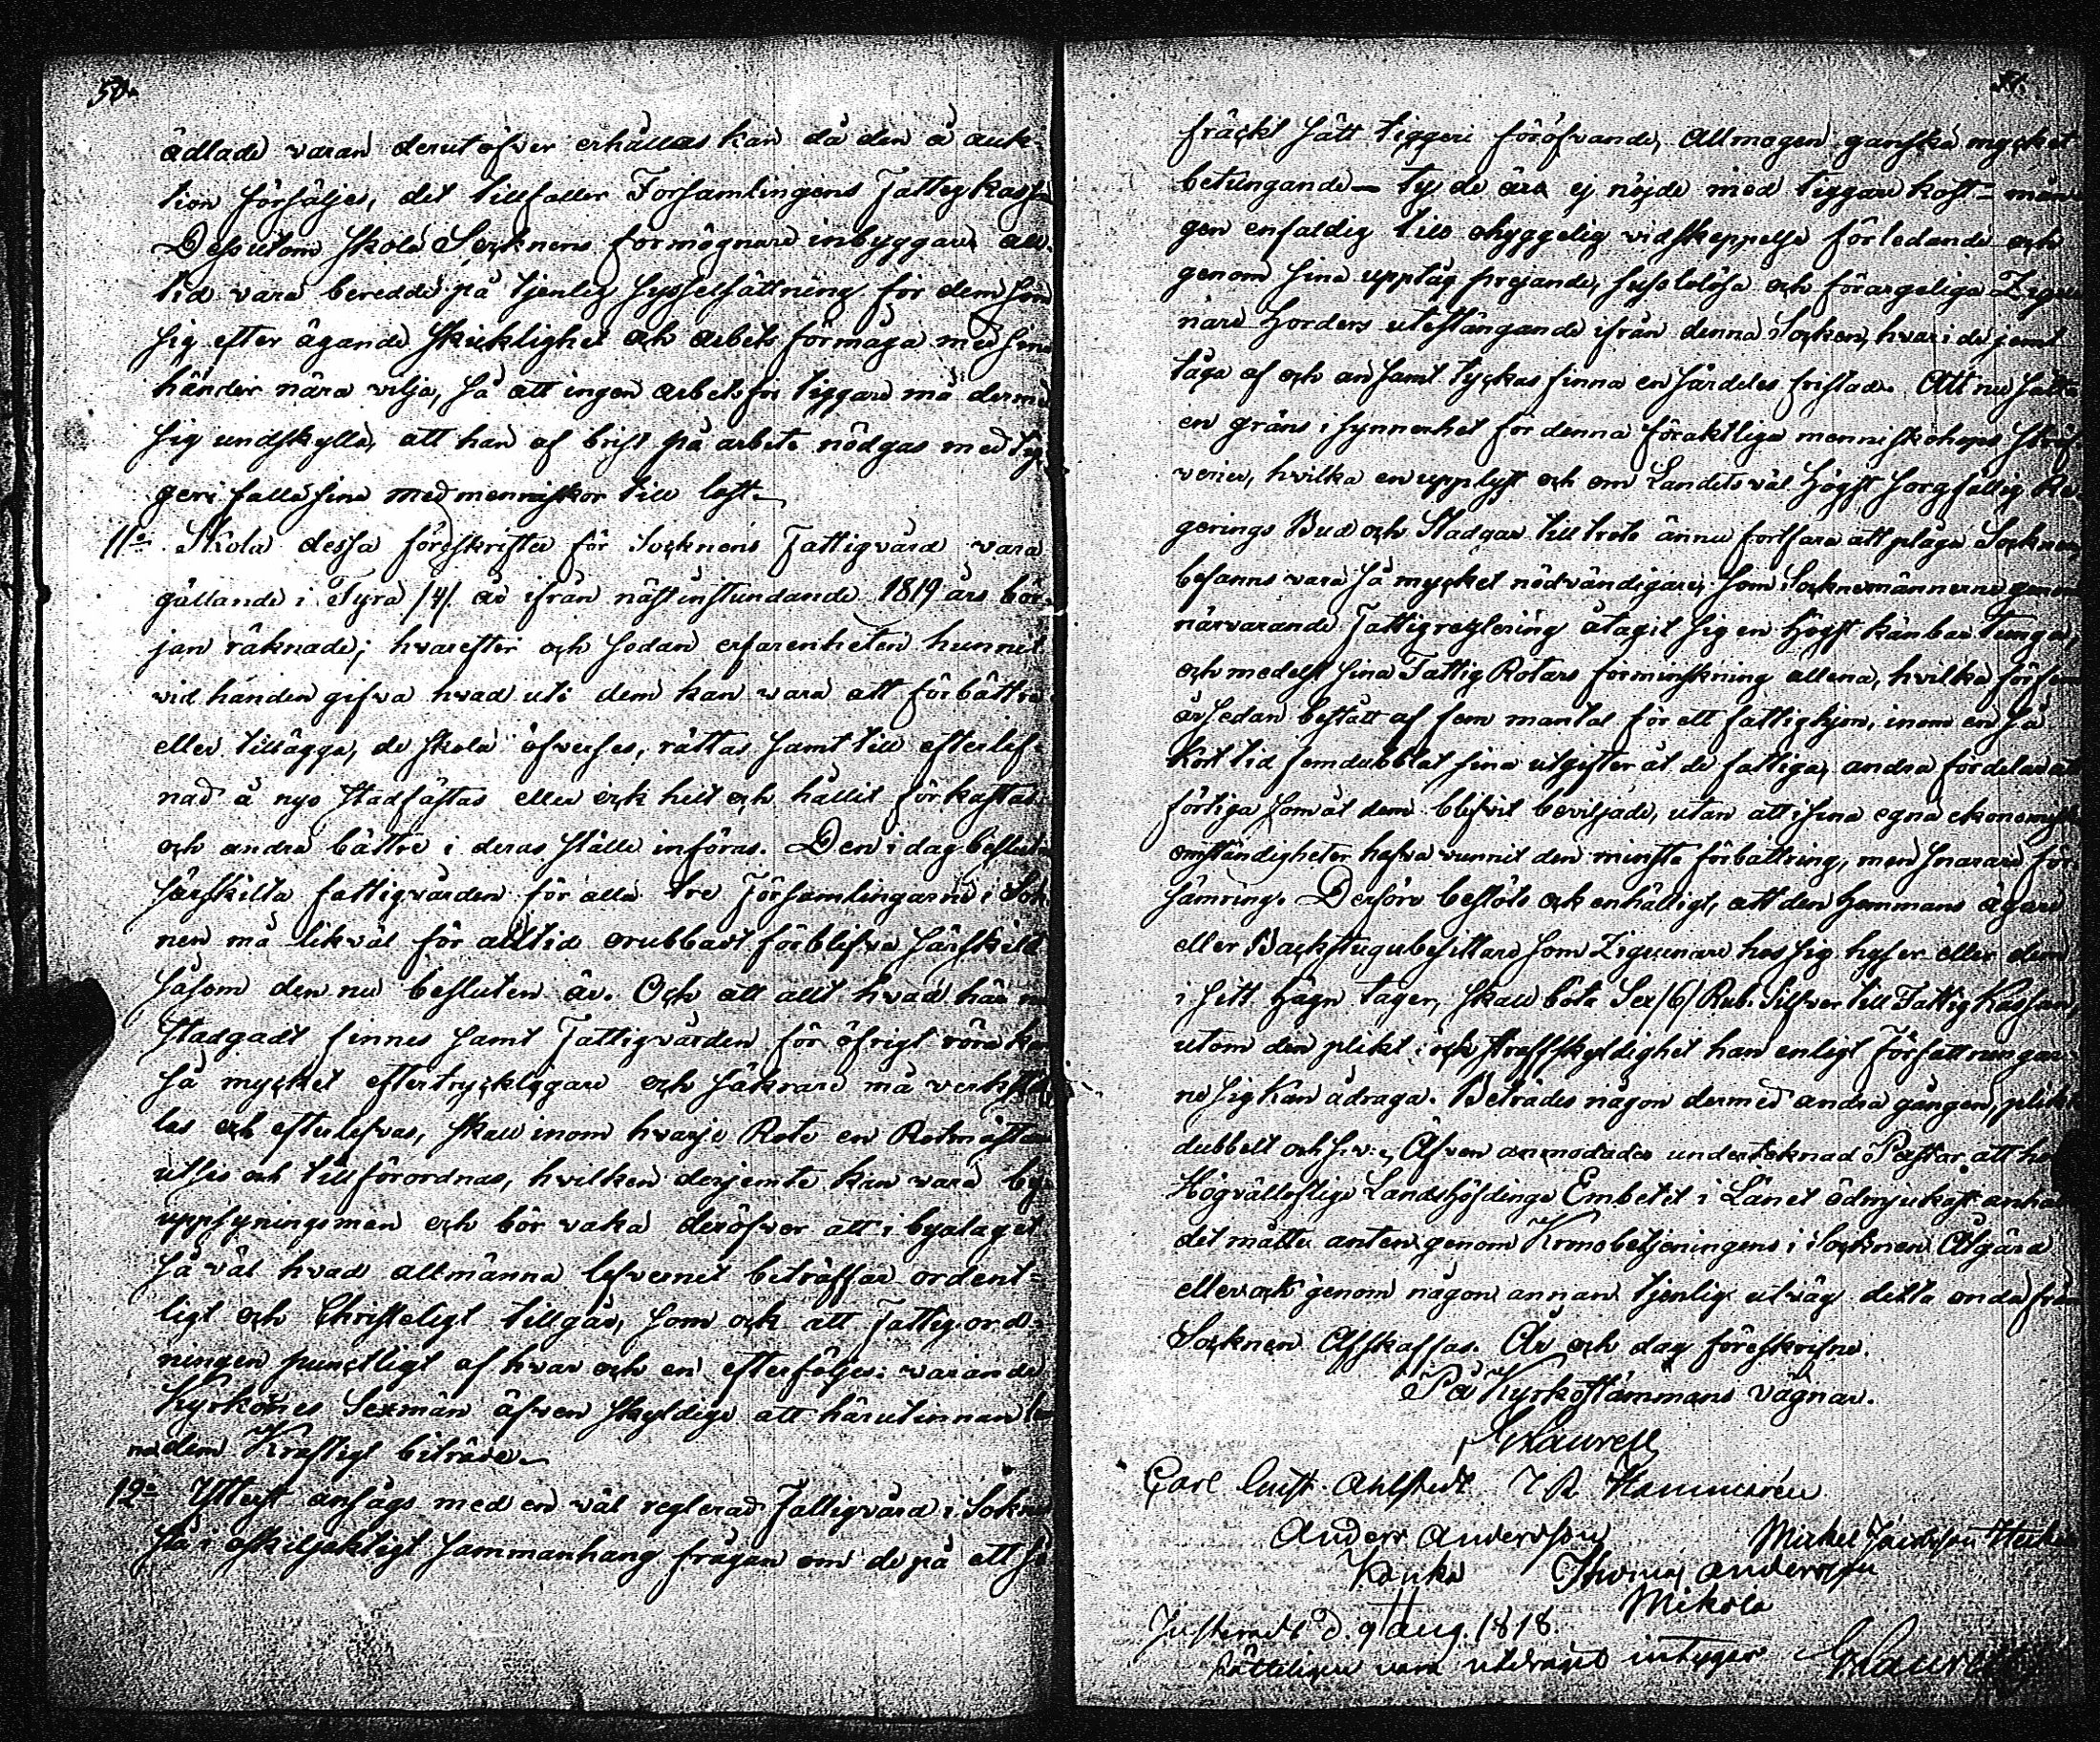 50.
ädlade varan derutöfver erhållas kan då den å auk-
tion försäljes, det tillfaller Församlingens Fattigkassa
Dessutom skola Socknens förmögnare inbyggare all-
tid vara beredde på tjenlig sysselsättning för dem som
sig efter ägande skicklighet och arbets förmåga med sina
händer nära vilja, så att ingen arbetsför tiggare må dermed
sig undskylla, att han af brist på arbete nödgas med tig-
geri falla sina medmenniskor till last.
11o Skola dessa föreskrifter för Socknens Fattigvård vara
gällande i Fyra /4/ år ifrån nästinstundande 1819 års bör-
jan räknade; hvarefter och sedan erfarenheten hunnit
vid handen gifva hvad uti dem kan vara att förbättra
eller tillägga, de skola öfverses, rättas samt till efterlef-
nad å nyo stadfästas eller ock helt och hållit förkastas
och andra bättre i deras ställe införas. Den i dag beslutne
särskilta fattigvården för alla tre Församlingarne i Sok-
nen må likväl för alltid orubbadt förblifva särskild
såsom den nu besluten är. Och att allt hvad här nu
stadgadt finnes samt Fattigvården för öfrigt röra kan
så mycket eftertryckligare och säkrare må verkstäl-
las och efterlefvas, skall inom hvarje Rote en Rotmästare
utses och tillförordnas, hvilken derjemte kan vara by-
uppsyningsman och bör vaka deröfver att i byalaget
så väl hvad allmänna lefvernet beträffar ordent-
ligt och Christeligt tillgår, som ock att Fattig ord-
ningen punctligt af hvar och en efterföljes: varande
Kyrkones Sexmän äfven skyldige att härutinnan
dem Kraftigt biträda.
12o Ytterst ansågs med en väl reglerad Fattigvård i Soknen
stå i oskiljaktigt sammanhang frågan om de på ett så
51.
fräckt sätt tiggeri föröfvande, Allmogen ganska mycket
betungande – ty de äro ej nöjde med tiggare kost – mån-
gen enfaldig till ohyggelig vidskeppelse förledande och
genom sina upptåg prejande, sysslolösa och förargeliga Zigeu-
nare Horders utestängande ifrån denna Socken, hvari de jemt
tåga af och an samt tyckas finna en särdeles fristad. Att nu sätta
en gräns i synnerhet för denna föraktliga menniskohops ströf-
verier, hvilka en upplyst och om Landets väl Högst sorgfällig Re-
gerings Bud och Stadgar till trots ännu fortfara att plåga Socknen,
befanns vara så mycket nödvändigare, som Socknemännerne genom
närvarande Fattigreglering åtagit sig en Högst känbar Tunga,
och medelst sina Fattig Rotars förminskning allena, hvilka för fem
år sedan bestått af fem mantal för ett fattighjon, inom en så
kort tid femdubblat sina utgifter åt de fattiga, andra fördelar att
förtiga som åt dem blifvit beviljade, utan att i sina egna ekonomiska
omständigheter hafva vunnit den minsta förbättring, men snarare för-
sämring. Derföre beslöts ock enhälligt, att den Hemmans ägare
eller Backstugubesittare som Zigeunare hos sig hyser eller dem
i sitt Hägn tager, skall böta Sex /6/ Rub. Silfver till Fattig Kassan,
utom den plikt och straffskyldighet han enligt Författningar-
ne sig kan ådraga. Beträdes någon dermed andra gången, plikte
dubbelt och s.v. Äfven anmodades undertecknad Pastor att hos
Högvällofliga Landshöfdinge Embetet i Länet ödmjukast anhålla
det måtte anten genom Kronobetjeningens i Socknen Åtgärd
eller ock genom någon annan tjenlig utväg detta onda från
Socknen Afskaffas. År och dag föreskrifne.
På Kyrkostämmans vägnar.
Laurell
Carl Gust. Ahlstedt
Anders Andersson
Kauka Thomas Andersson
Mikola
Justeradt d. 9 Aug. 1818.
utdraget intygar Laurell